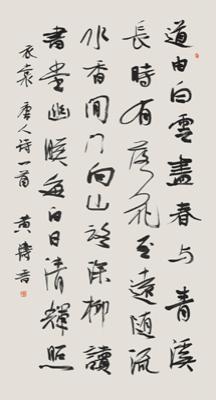 道由白雲盡春与青溪
長時有落花至遠隨流
水香閒门向山路深柳讀
書堂幽映每白日清輝照
衣裳 唐人诗一首 黄